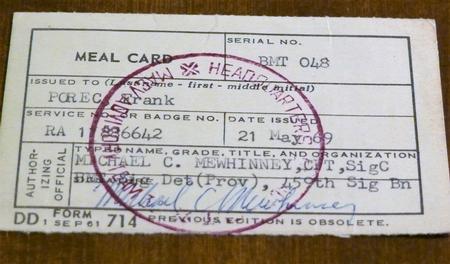 SERIAL NO.
MEAL CARD
BMT 048
ISSUED TO (Last name - first - middle initial)
POREC Frank
SERVICE NO. OR BADGE NO.
DATE ISSUED
RA 6642
21 May 69
AUTHOR-
IZING
OFFICIAL
TYPED NAME, GRADE, TITLE, AND ORGANIZATION
MICHAEL C. MEWHINNEY, CPT, SigC
Det(Prov), 459th Sig Bn
Michael C Mewhinney
DD FORM 1 SEP 61 714
PREVIOUS EDITION IS OBSOLETE.
HEADQUARTERS